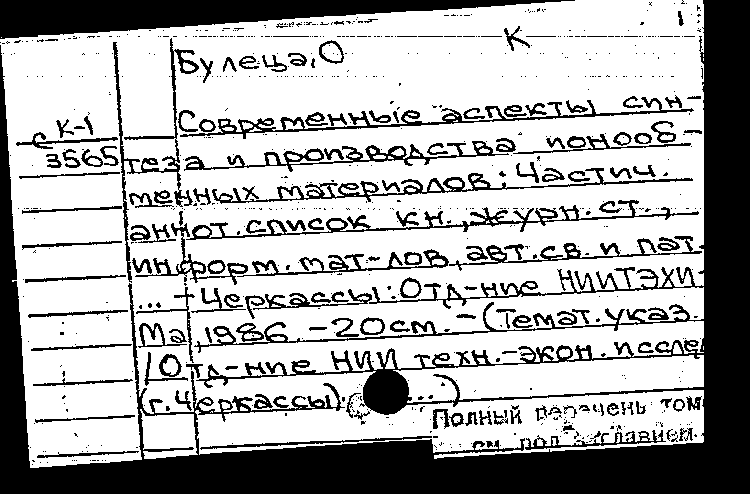 1
К
Булеца, О
К-1
С 3565
Современные аспекты син-
теза и производства ионооб-
менных материалов: Частич.
аннот. список кн., журн. ст.,
информ. мат-лов, авт. св. и пат.
... - Черкассы: Отд-ние НИИТЭХИ-
Ма, 1986. - 20 см. - (Темат. указ.
/Отд-ние НИИ техн.-экон. исслед
(г. Черкассы). ...)
Полный перечень том
см. под заглавием.